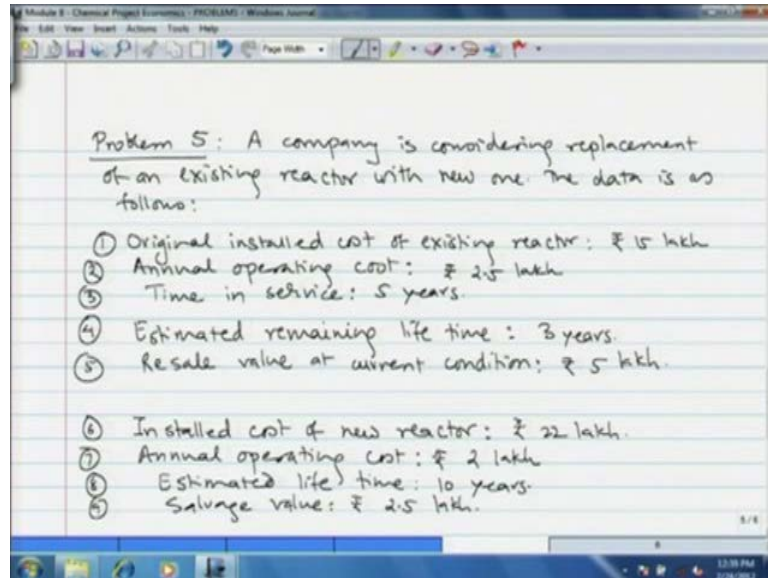 Module 8 - Chemical Project Economics - PROBLEMS - Windows Journal
File Edit View Insert Actions Tools Help
Page Width
Problem 5: A company is considering replacement
of an existing reactor with new one. The data is as
follows:
① Original installed cost of existing reactor: ₹ 15 lakh
② Annual operating cost: ₹ 2.5 lakh
③ Time in service: 5 years.
④ Estimated remaining life time: 3 years.
⑤ Resale value at current condition: ₹ 5 lakh.
⑥ Installed cost of new reactor: ₹ 22 lakh.
⑦ Annual operating cost: ₹ 2 lakh
⑧ Estimated life time: 10 years.
⑨ Salvage value: ₹ 2.5 lakh.
5/6
6
12:39 PM